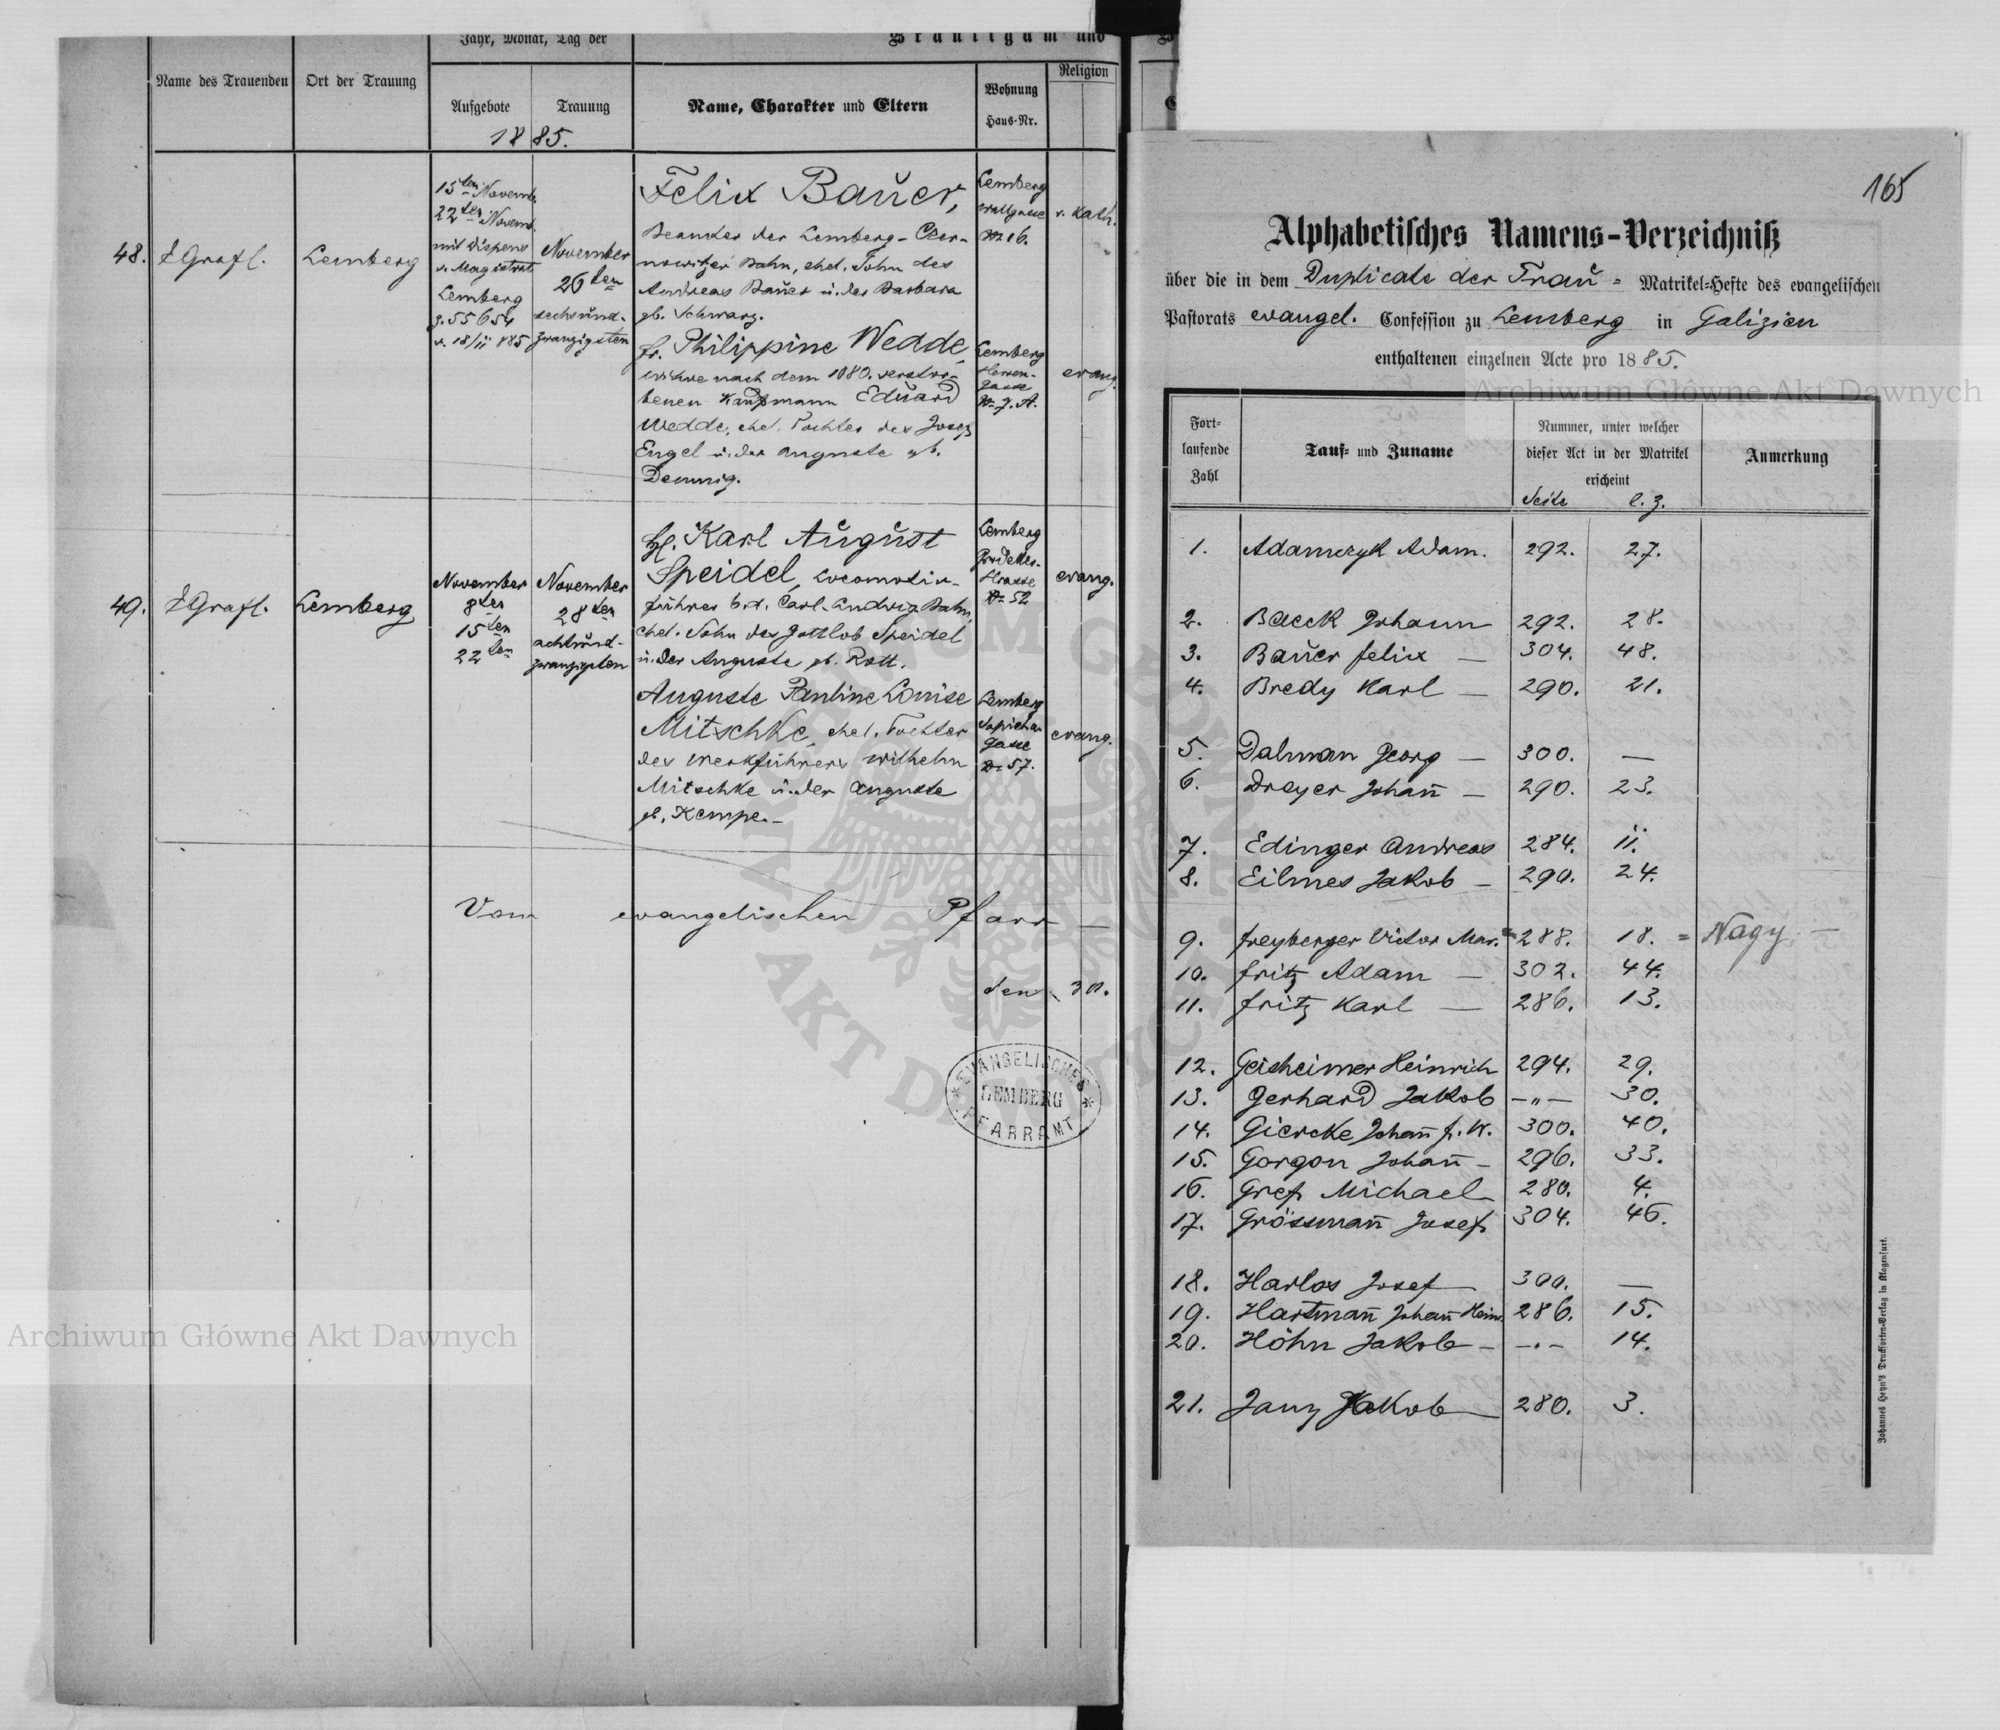 Jahr, Monat, Tag der
Bräutigam und
Name des Trauenden
Ort der Trauung
Aufgebote
Trauung
Name, Charakter und Eltern
Wohnung
Haus-Nr.
Religion
1885.
48.
Z Grafl.
Lemberg
15ten Novemb.
22ten Novemb.
mit Dispens
v. Magistrat
Lemberg
z. 55654
v. 18/11 885
November
26ten
sechsund-
zwanzigsten
Felix Bauer,
Beamter der Lemberg-Czer-
nowitzer Bahn, ehel. Sohn des
Andreas Bauer u. der Barbara
gb. Schwarz.
Lemberg
Wallgasse
No 16.
r. kath.
fr. Philippine Wedde,
Witwe nach dem 1880. verstor-
benen Kaufmann Eduard
Wedde, ehel. Tochter des Josef
Engel u. der Auguste gb.
Lemberg
Herren-
gasse
No 7. A.
evang.
49.
Z Grafl.
Lemberg
November
8ten
15ten
22ten
November
28ten
achtund-
zwanzigsten
H. Karl August
Speidel, Locomotiv-
führer b. d. Carl-Ludwig Bahn,
ehel. Sohn des Gottlob Speidel
u. der Auguste gb. Rott.
Lemberg
Grodeker-
Strasse
No 52
evang.
Auguste Pauline Louise
Mitschke, ehel. Tochter
des Werkführers Wilhelm
Mitschke u. der Auguste
gb. Kempe.-
Lemberg
Sapieha
Gasse
No 57.
evang.
Vom evangelischen Pfarr
den 30.
EVANGELISCHES
LEMBERG
PFARRAMT
ARCHIWUM GŁÓWNE AKT DAWNYCH
Archiwum Główne Akt Dawnych
165
Alphabetisches Namens-Verzeichniß
über die in dem Duplicate der Trau- Matrikel-Hefte des evangelischen
Pastorats evangel. Confession zu Lemberg in Galizien
enthaltenen einzelnen Acte pro 1885.
Archiwum Główne Akt Dawnych
Fort-
laufende
Zahl
Tauf- und Zuname
Nummer, unter welcher
dieser Act in der Matrikel
erscheint
Seite l. z.
Anmerkung
1. Adamczyk Adam. 292. 27.
2. Baeck Johann 292. 28.
3. Bauer Felix — 304. 48.
4. Bredy Karl — 290. 21.
5. Dalman Georg — 300. —
6. Dreyer Johañ — 290. 23.
7. Edinger Andreas 284. 11.
8. Eilmes Jakob — 290. 24.
9. Freyberger Victor Mar. = 288. 18. = Nagy —
10. Fritz Adam — 302. 44.
11. Fritz Karl — 286. 13.
12. Geisheimer Heinrich 294. 29.
13. Gerhard Jakob —„— 30.
14. Giercke Johañ F. W. 300. 40.
15. Gorgon Johañ — 296. 33.
16. Gref Michael 280. 4.
17. Grössmañ Josef 304. 46.
18. Harlos Josef 300. —
19. Hartmañ Johañ Heinr. 286. 15.
20. Höhn Jakob — —„— 14.
21. Janz Jakob 280. 3.
Johannes Heyn's Drucksorten-Verlag in Klagenfurt.